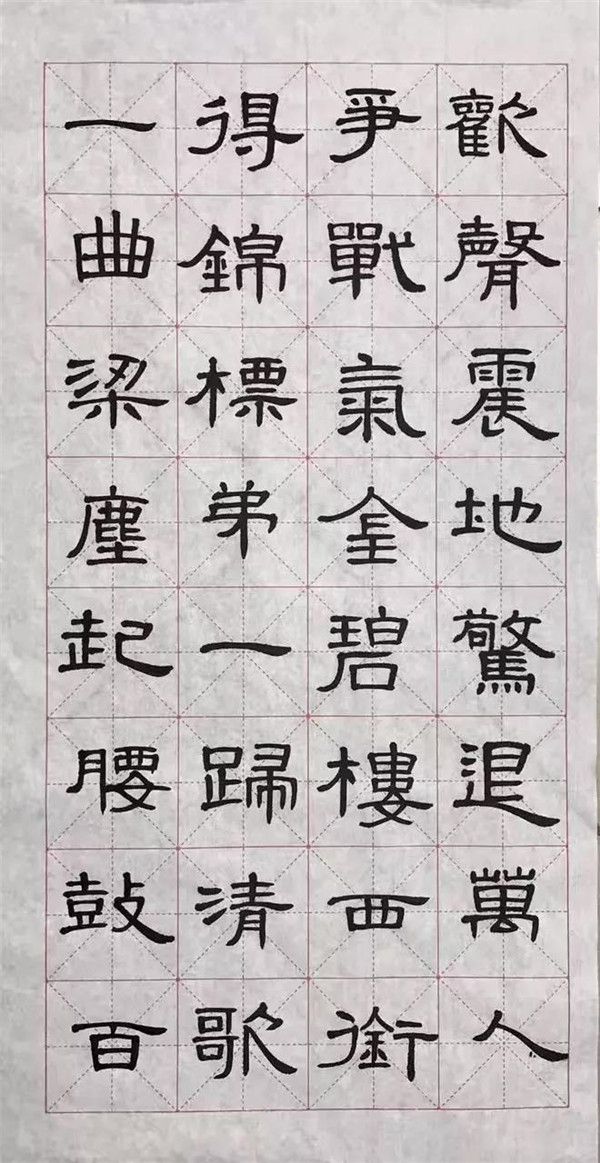 歡聲震地驚退萬人
爭戰氣金碧樓西銜
得錦標弟一歸清歌
一曲梁塵起腰鼓百